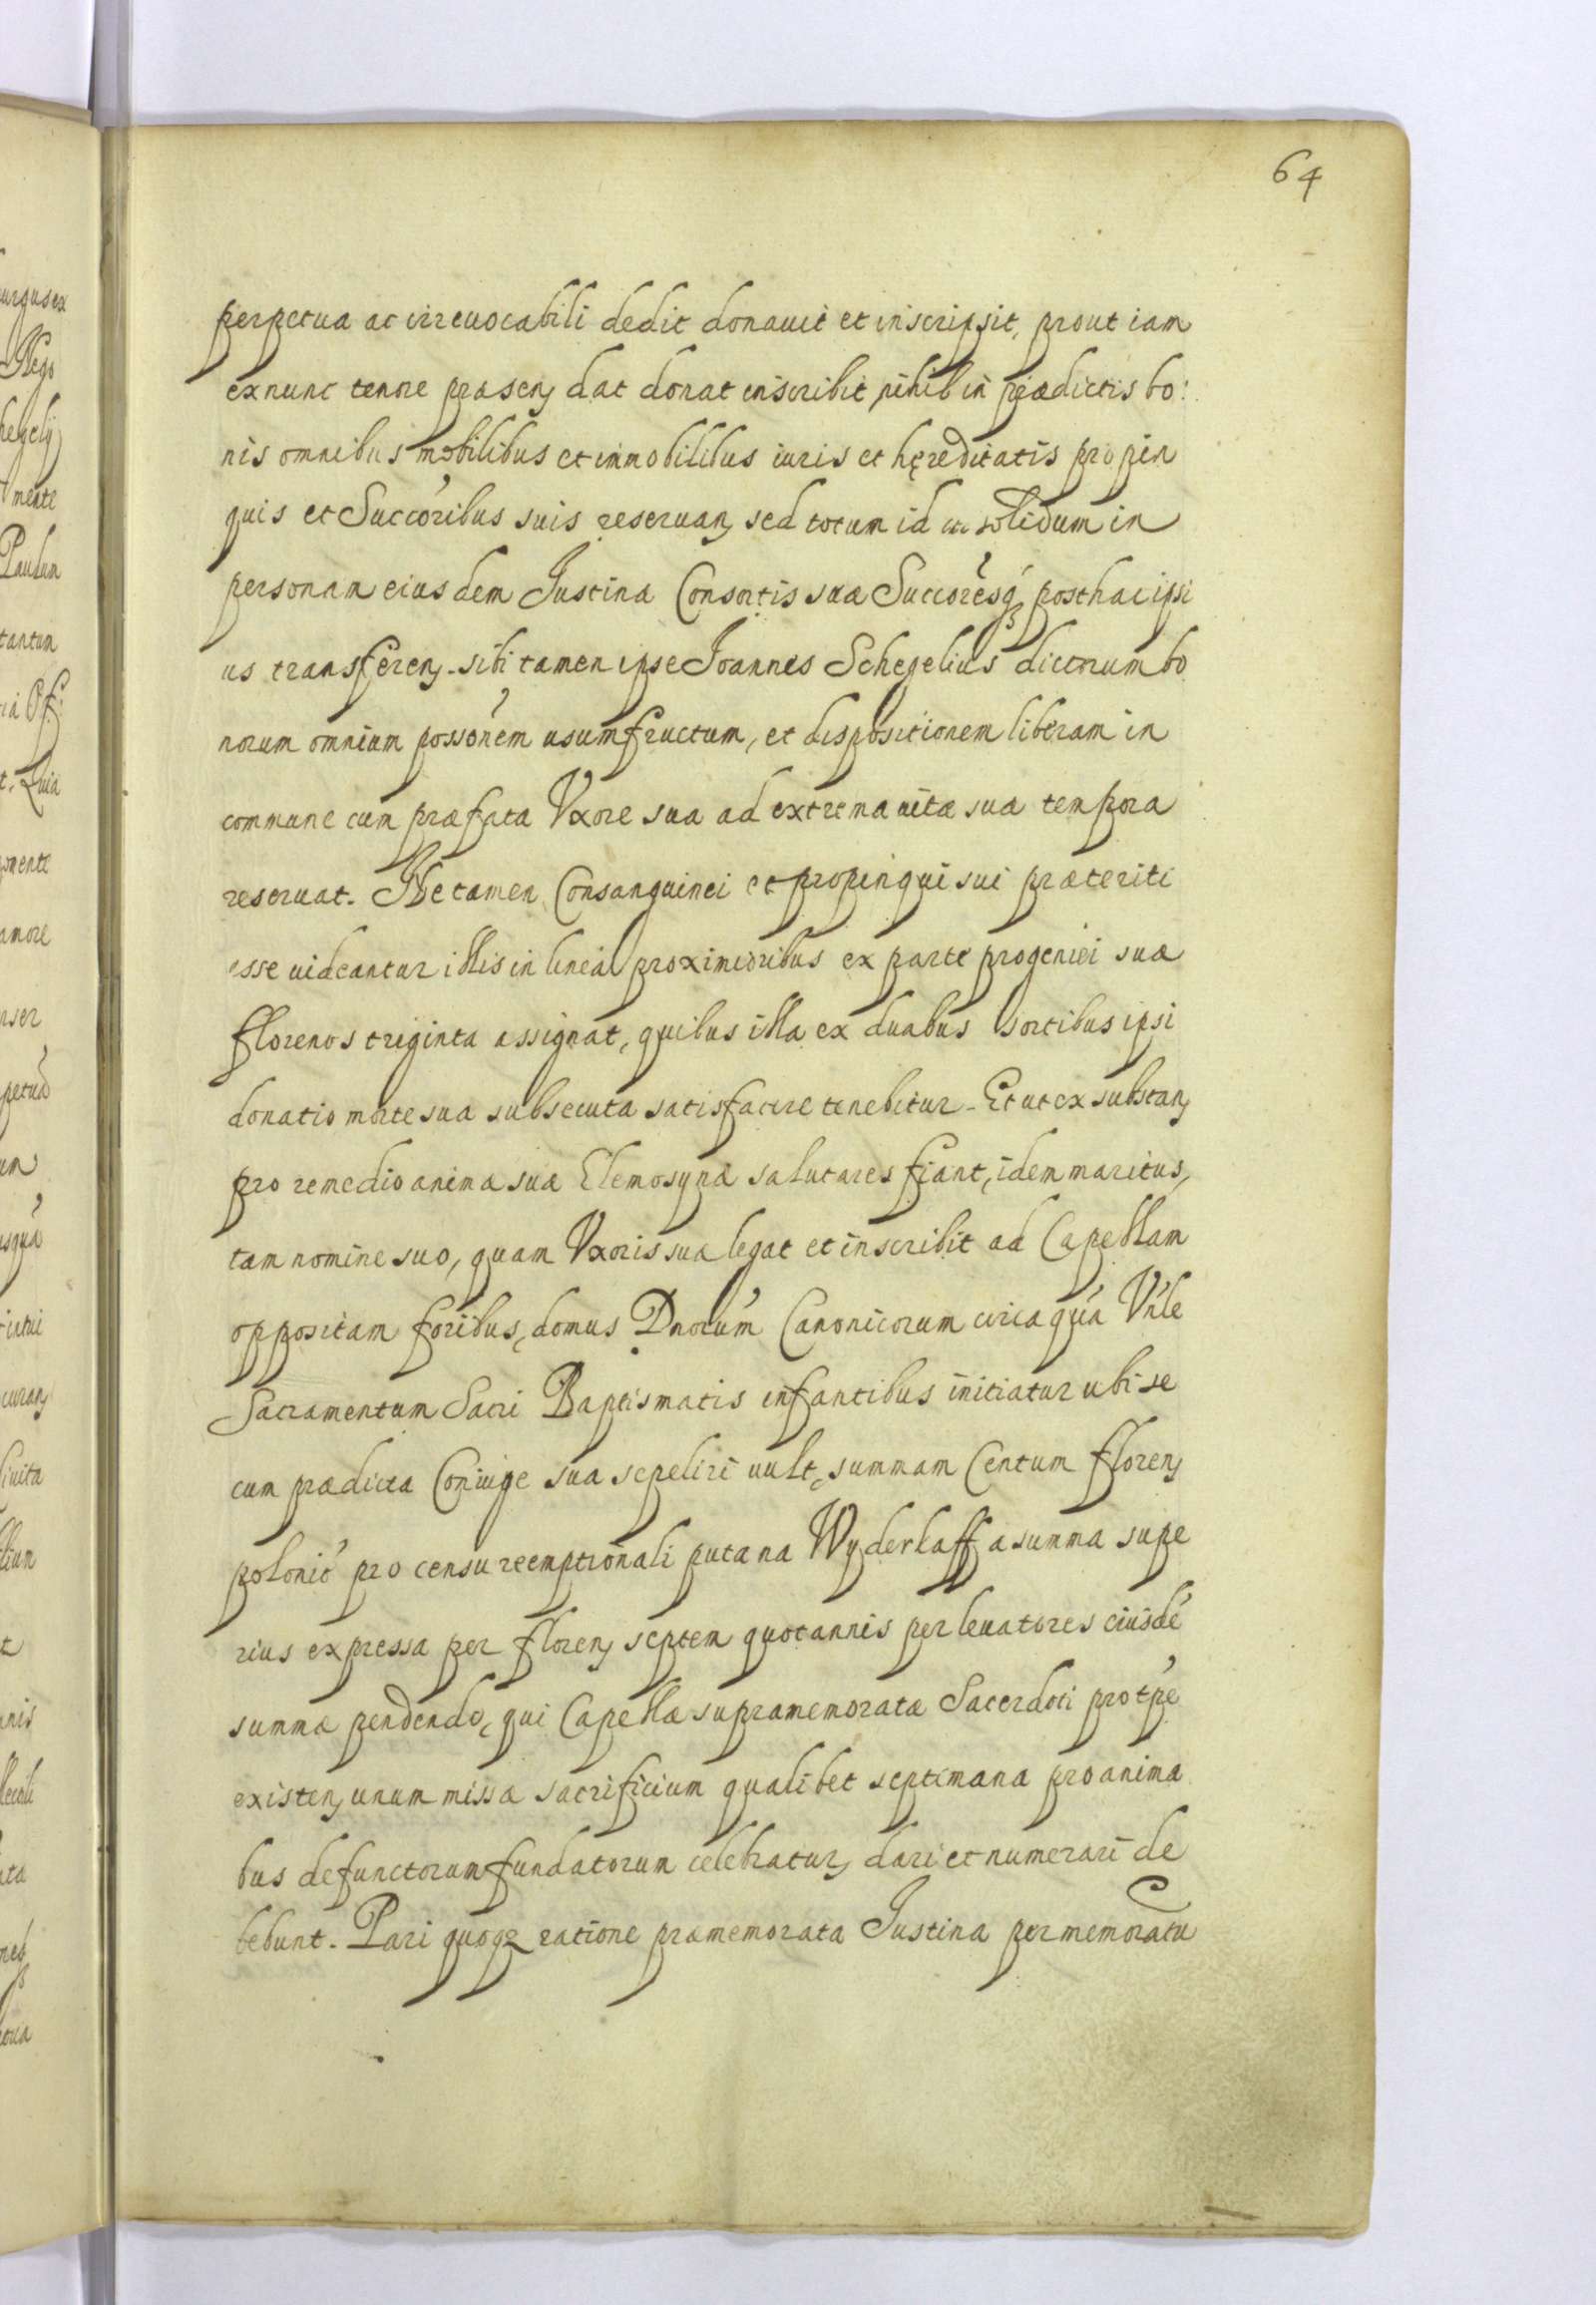 64
perpetua ac irreuocabili dedit donauit et inscripsit, prout iam
ex nunc tenore praesen, dat donat inscribit nihil in praedictis bo:
nis omnibus mobilibus et immobilibus iuris et hęreditatis propin
quis et Succóribus suis reseruan, sed totum id in solidum in
personam eiusdem Iustinæ Consortis suæ Succóresq posthac ipsi
us transferen. sibi tamen ipse Ioannes Schegelius dictorum bo
norum omnium possonem usumfructum, et dispositionem liberam in
commune cum præfata Vxore sua ad extrema uitæ suæ tempora
reseruat. Ne tamen Consanguinei et propinqui sui præteriti
esse uideantur illis in linea proximioribus ex parte progeniei suæ
florenos triginta assignat, quibus illa ex duabus sortibus ipsi
donatio morte sua subsecuta satisfacere tenebitur. Et ut ex substan,
pro remedio animæ suæ Elemosynæ salutares fiant, idem maritus,
tam nomine suo, quam Vxoris suæ legat et inscribit ad Capellam
oppositam foribus, domus Dnorum Canonicorum circa quá Vnle
Sacramentum Sacri Baptismatis infantibus initiatur ubi se
cum prædicta Coniuge sua sepeliri uult, summam Centum floren,
polonić pro censu reemptionali puta na Wyderkaff a summa supe
rius expressa per floren, septem quotannis per leuatores eiusdé
summæ pendendo, qui Capellæ supramemoratæ Sacerdoti pro tpe
existen, unum missæ sacrificium qualibet septimana pro anima
bus defunctorum fundatorum celebratur, dari et numerari de
bebunt. Pari quoq ratione præmemorata Iustina per memoratu